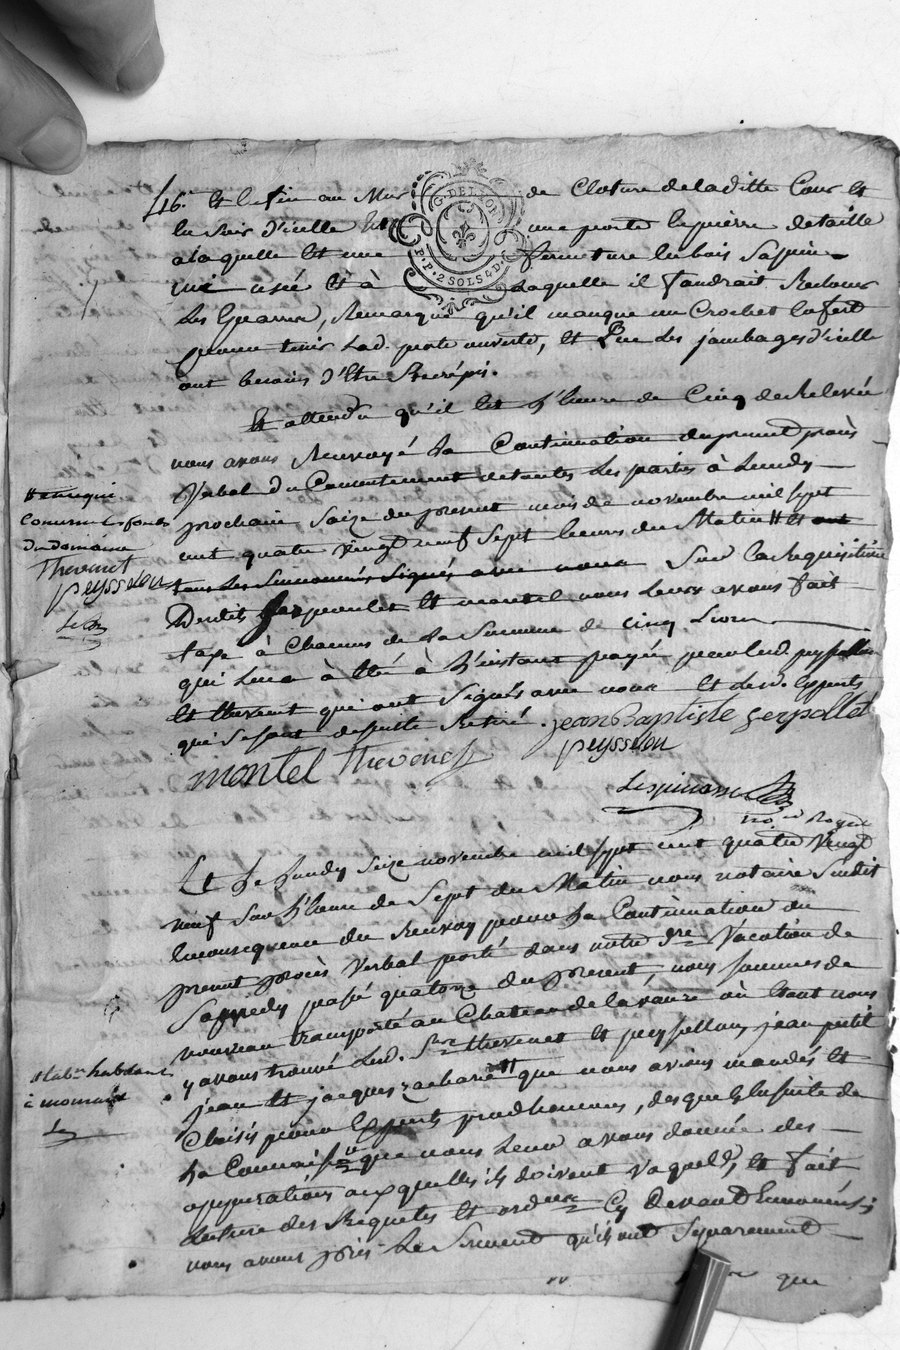 416. Et Est Sur au Mur de Cloture de laditte Cour Et
la Soir d'icelle une porte en pierre de taille
a laquelle Est une fermeture en bois Sapin
mi usée Et à laquelle il faudrait Reclouer
Les Equerres, Remarqué qu'il manque un Crochet en fert
pour tenir Lad. porte ouverte, Et que Les jambages d'icelle
ont besoins d'Etre Recrépis.
Et attendu qu'il Est L'heure de Cinq de Relevée
nous avons Renvoyé La Continuation du present procès
Verbal du Consentement de toutes Les parties à Lundy
prochain, Seize du present mois de novembre mil Sept
cent quatre vingt neuf Sept heures du Matin Et ont
tous Les Sus només Signés avec nous Sur la Requisition
Desdits Serpoulet Et montel nous Leurs avons fait
taxe à Chacun de La Somme de cinq Livres
qui Leur à Eté à L'instant payée par Lesd. peyssellon
Et thevenet qui ont Signés avec nous Et Lesd. Experts
qui Se Sont de Suite Retiré. jean Baptiste Serpollet
montel Thevenet peysselon
Lespinasse
no.re Royal
Et Le Lundy Seize novembre mil Sept cent quatre Vingt
neuf Sur L'heure de Sept du Matin nous notaire Susdit
En consequence du Renvoy pour La Continuation du
present procès Verbal porté dans notre d.re Vacation de
Samedy passé quatorze du present, nous Sommes de
nouveau transporté au Chateau de la vaure où Etant nous
y avons trouvé Lesd. S.rs thevenet Et peyssellon, jean petit
jean Et jacques zacharie que nous avions mandés Et
Choisis pour Experts prudhommes, desquels En Suite de
La Connaiss.ce que nous Leur avons donnée des
opperations auxquelles ils doivent vaquer, Et fait
Lecture des Requetes Et ord.ces Cy Devant Enoncées
nous avons pris Le Serment qu'ils ont Séparement
que
Comme Les fonds
du domaine
Thevenet
peysselon
hab.
à mornant
G. DE LYON
P. P. 2 SOLS 4 D.